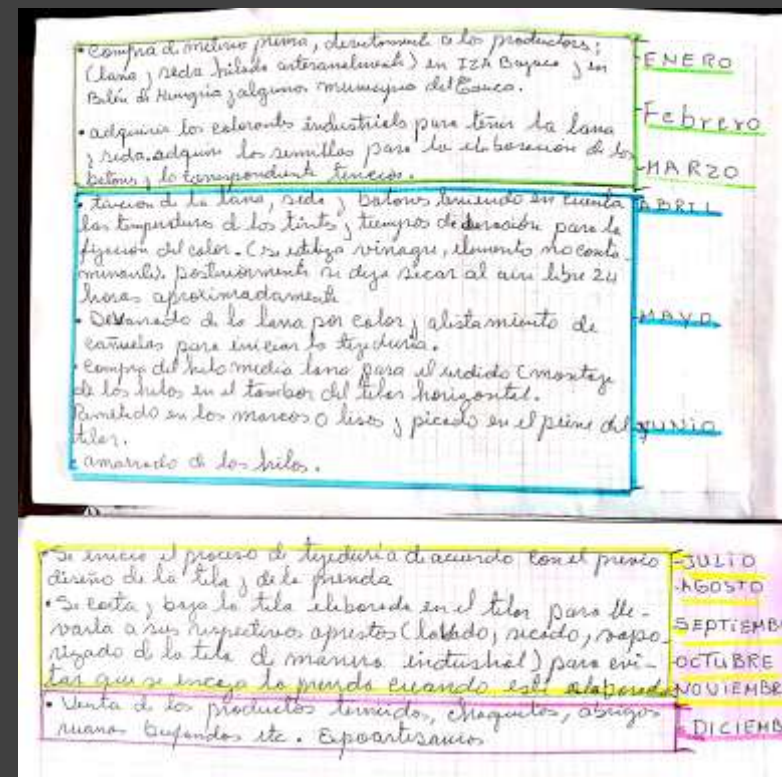 • Compra d materia prima, directamente a los productores;
(lana y seda hilada artesanalmente) en IZA Boyaca y en
Belén de Hungria y algunos municipios del Cauca.
• adquirir los colorantes industriales para teñir la lana
y seda. adquirir las semillas para la elaboracion de los
botones y la correspondiente
ENERO
Febrero
MARZO
• de la lana, seda y botones teniendo en cuenta
las temperaturas d los tintes y tiempos de duración para la
fijación del color. (se utiliza vinagre, elemento no conta
minante). posteriormente se deja secar al aire libre 24
horas aproximadamente.
• Devanado d la lana por color y alistamiento de
cañuelas para iniciar la tejeduria.
• compra del hilo media lana para el urdido (montaje
de los hilos en el tambor del telar horizontal.
Remetido en los marcos o lisos y picado en el peine del
telar.
• amarrado d los hilos.
ABRIL
MAYO
JUNIO
• Se inicia el proceso de tejeduria de acuerdo con el previo
diseño de la tela y de la prenda
• Se corta y baja la tela elaborada en el telar para lle-
varla a sus respectivos aprestos (lavado, secado, vapo
rizado de la tela de manera industrial) para evi-
tar que se encoja la prenda cuando esté elaborada
JULIO
AGOSTO
SEPTIEMB
OCTUBRE
NOVIEMBRE
• Venta d los productos chaquetas, abrigos
ruanas bufandas etc. Expoartesanias
DICIEMB